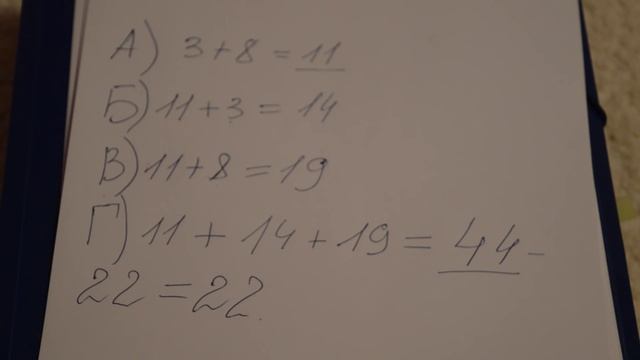 А) 3 + 8 = 11
Б) 11 + 3 = 14
В) 11 + 8 = 19
Г) 11 + 14 + 19 = 44 -
22 = 22.